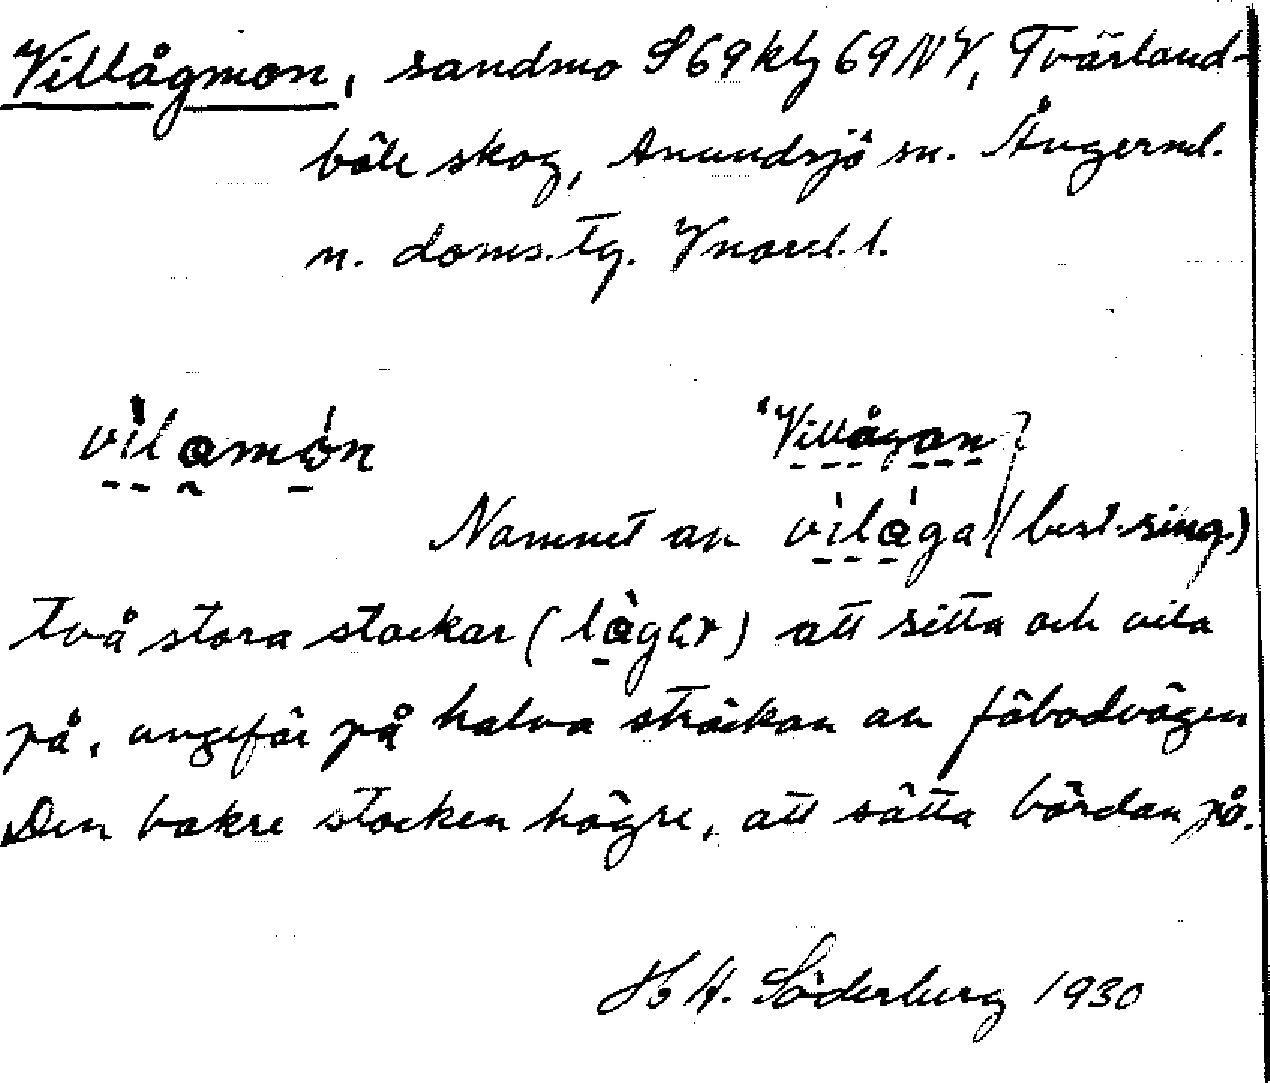 Villågmon, sandmo S 69 klg 69 NV, Tvärland-
böle skog, Anundsjö sn. Ångerml.
n. doms. tg. Vnorrl. l.
vìlamón "Villågan"
Namnet av vìlàga (best. sing.)
två stora stockar (làgεr) att sitta och vila
på, ungefär på halva sträckan av fäbodvägen
Den bakre stocken högre, att sätta bördan på.
H. H. Söderberg 1930